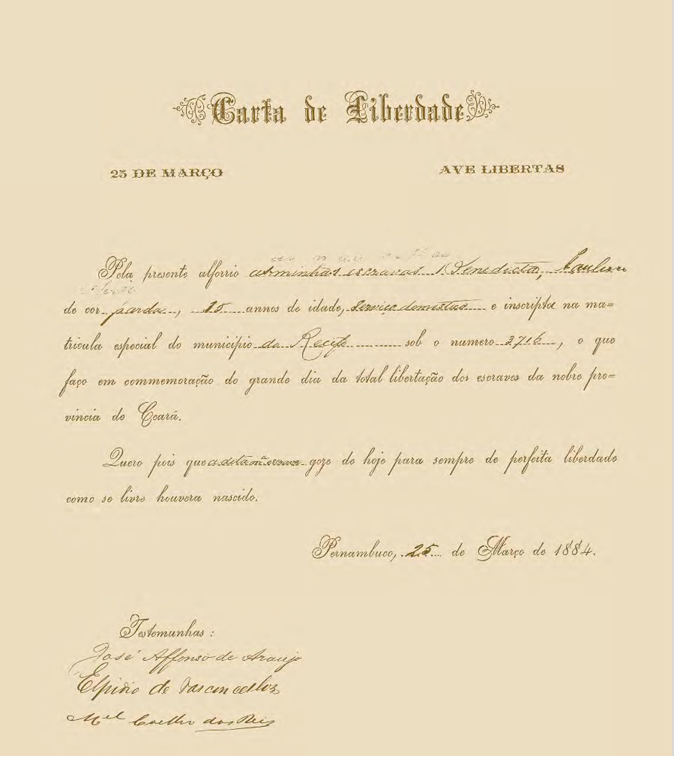 Carta de Liberdade
25 DE MARÇO AVE LIBERTAS
Pela presente alforrio as minhas escravas Benedicta,
de cor parda, 25 annos de idade, Serviço domestico e inscripta na ma=
tricula especial do municipio do Recife sob o numero 2716, o que
faço em commemoração do grande dia da total libertação dos escravos da nobre pro=
vincia do Ceará.
Quero pois que a dita escrava goze de hoje para sempre de perfeita liberdade
como se livre houvera nascido.
Pernambuco, 25 de Março de 1884.
Testemunhas:
José Affonso de Araujo
Elpidio de Vasconcellos
Mel Coelho dos Reis